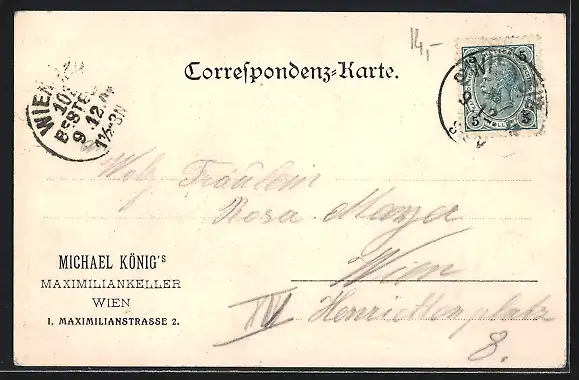 14,-
Correspondenz-Karte.
WIEN
BESTELLT
9.12.
5 5
5 5
WIEN
Wolg. Fräulein
Rosa Mayer
Wien
IV Henriettenplatz
8.
MICHAEL KÖNIG'S
MAXIMILIANKELLER
WIEN
I. MAXIMILIANSTRASSE 2.